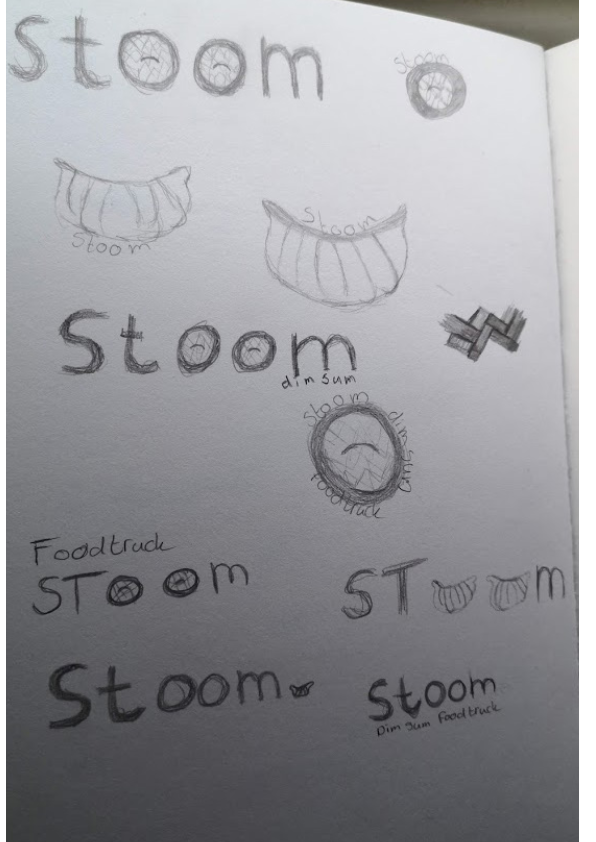 Stoom
Stoom
Stoom
Stoom
Stoom
dim sum
Stoom dim sum
Foodtruck
Foodtruck
SToom
SToom
Stoom
Stoom
Dim Sum Foodtruck